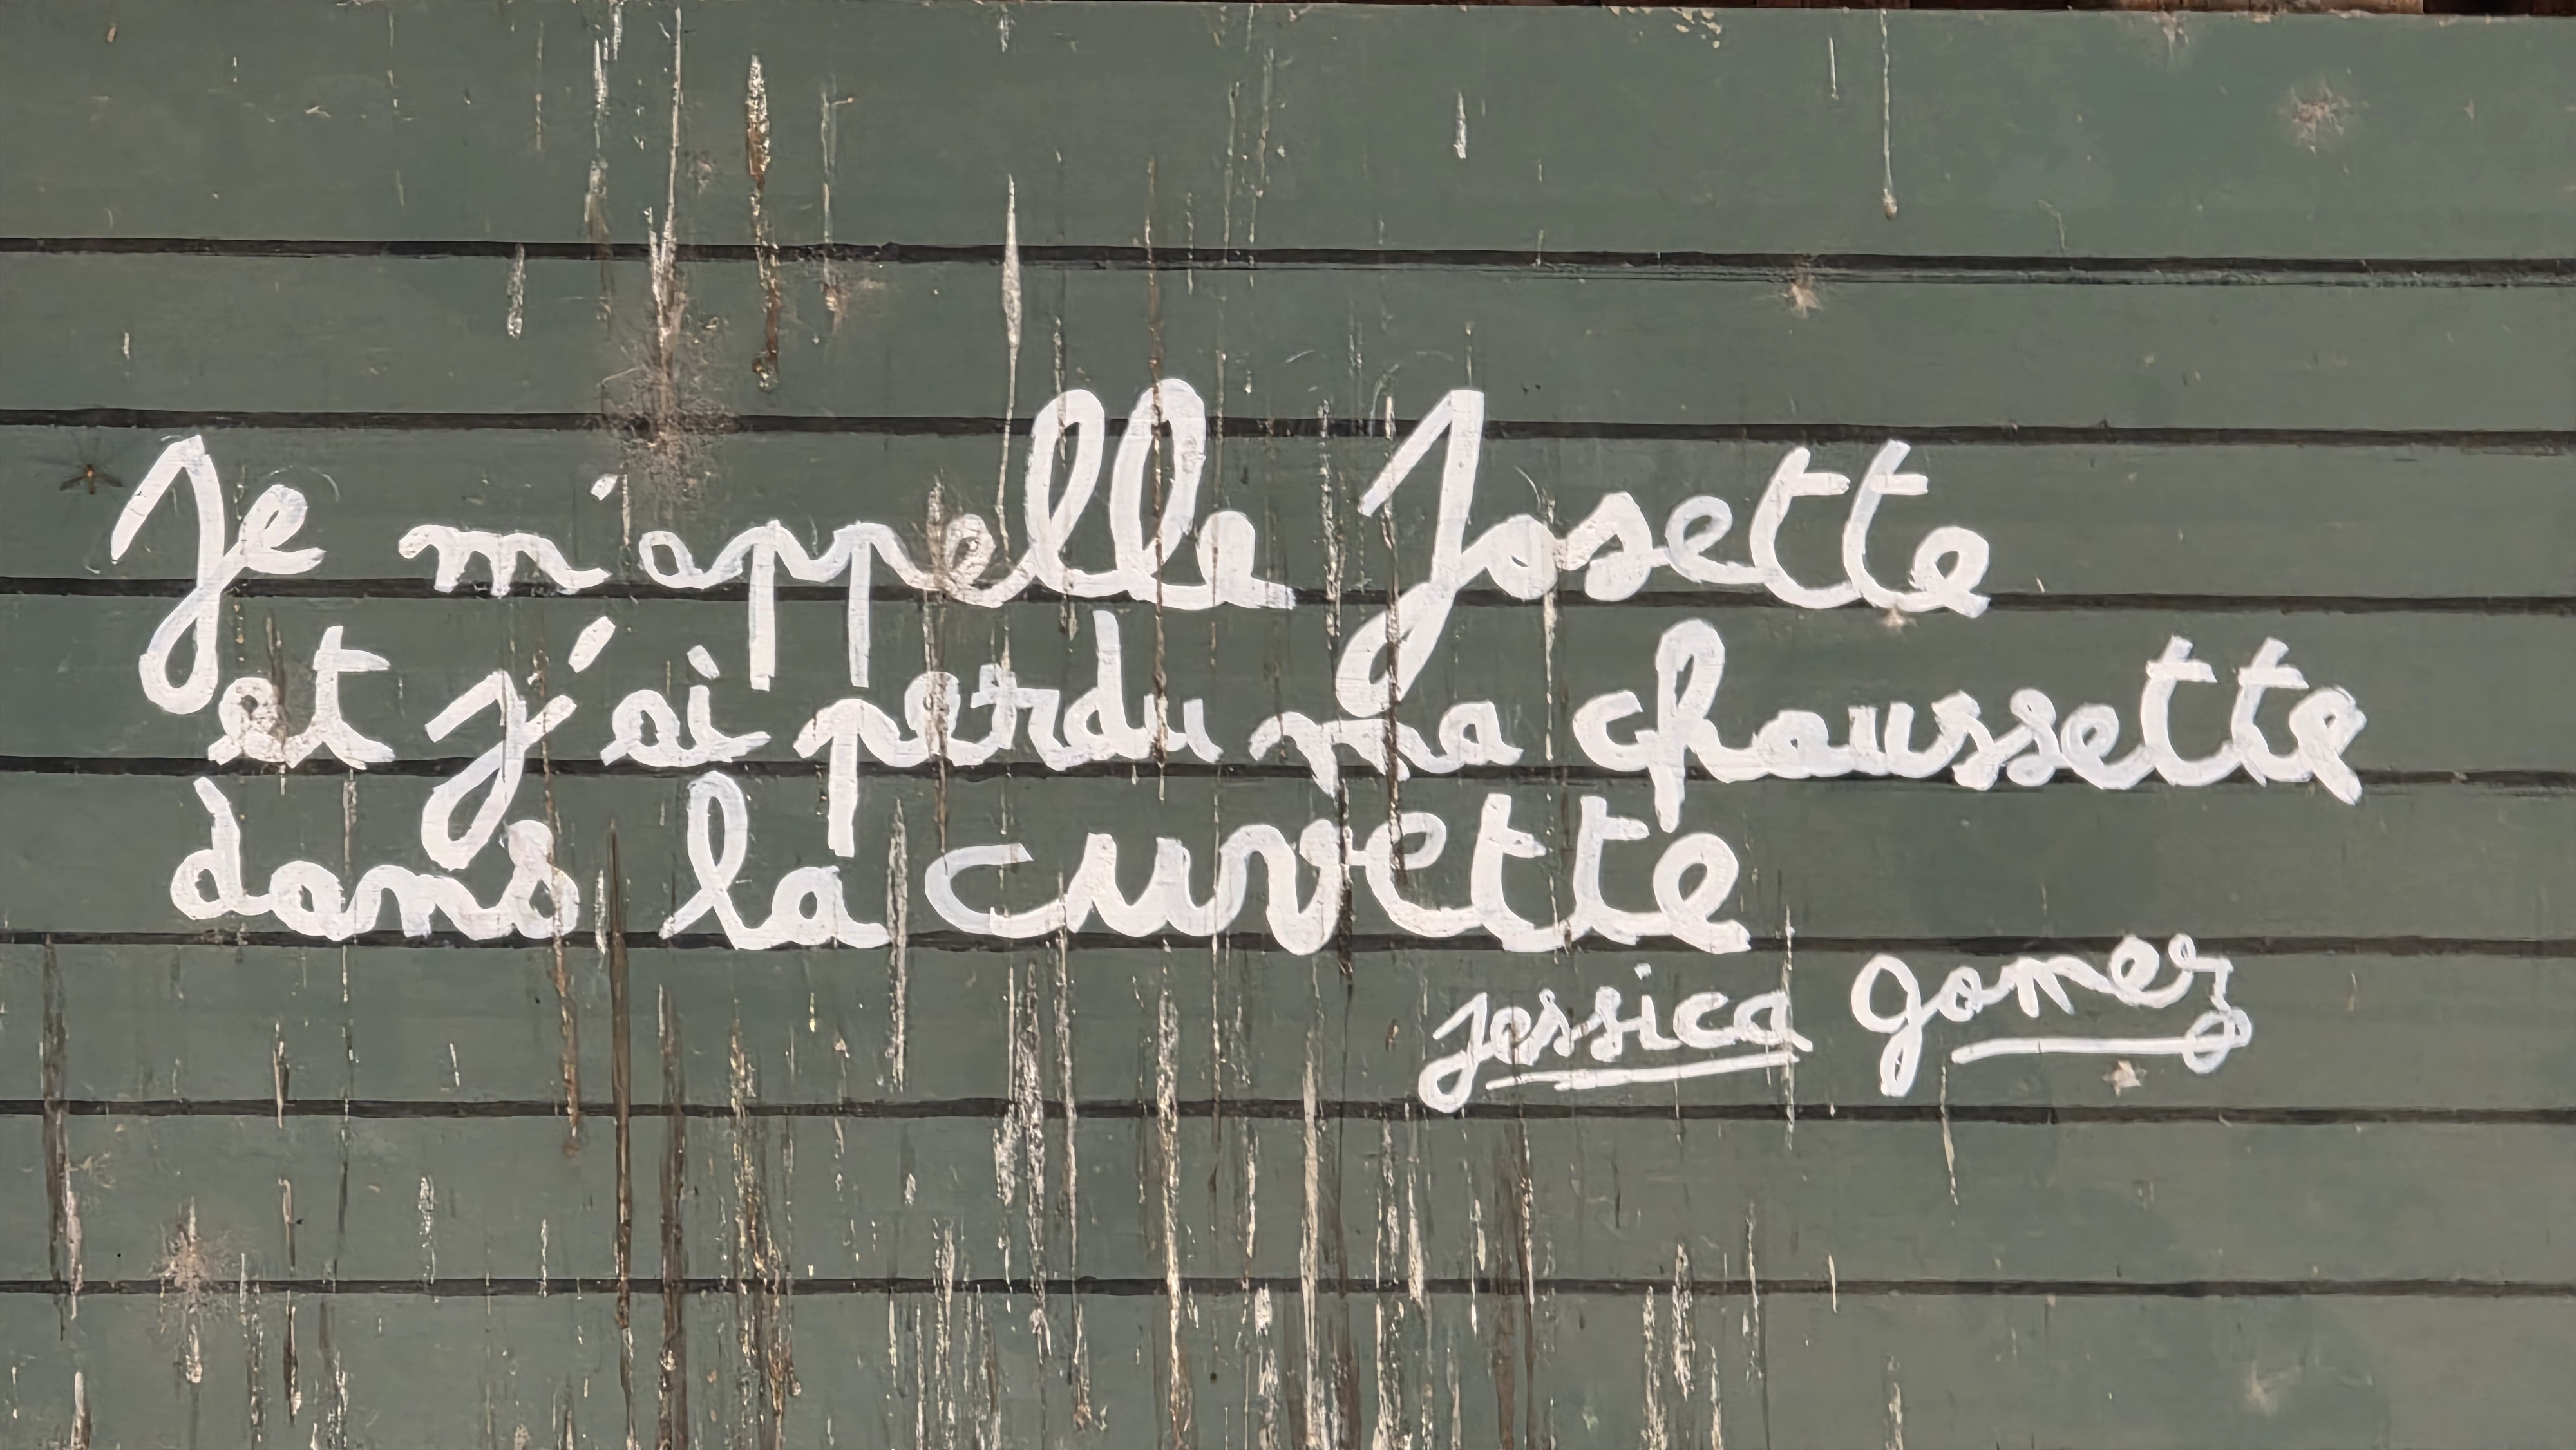 Je m'appelle Josette
et j'ai perdu ma chaussette
dans la cuvette
jessica gomez